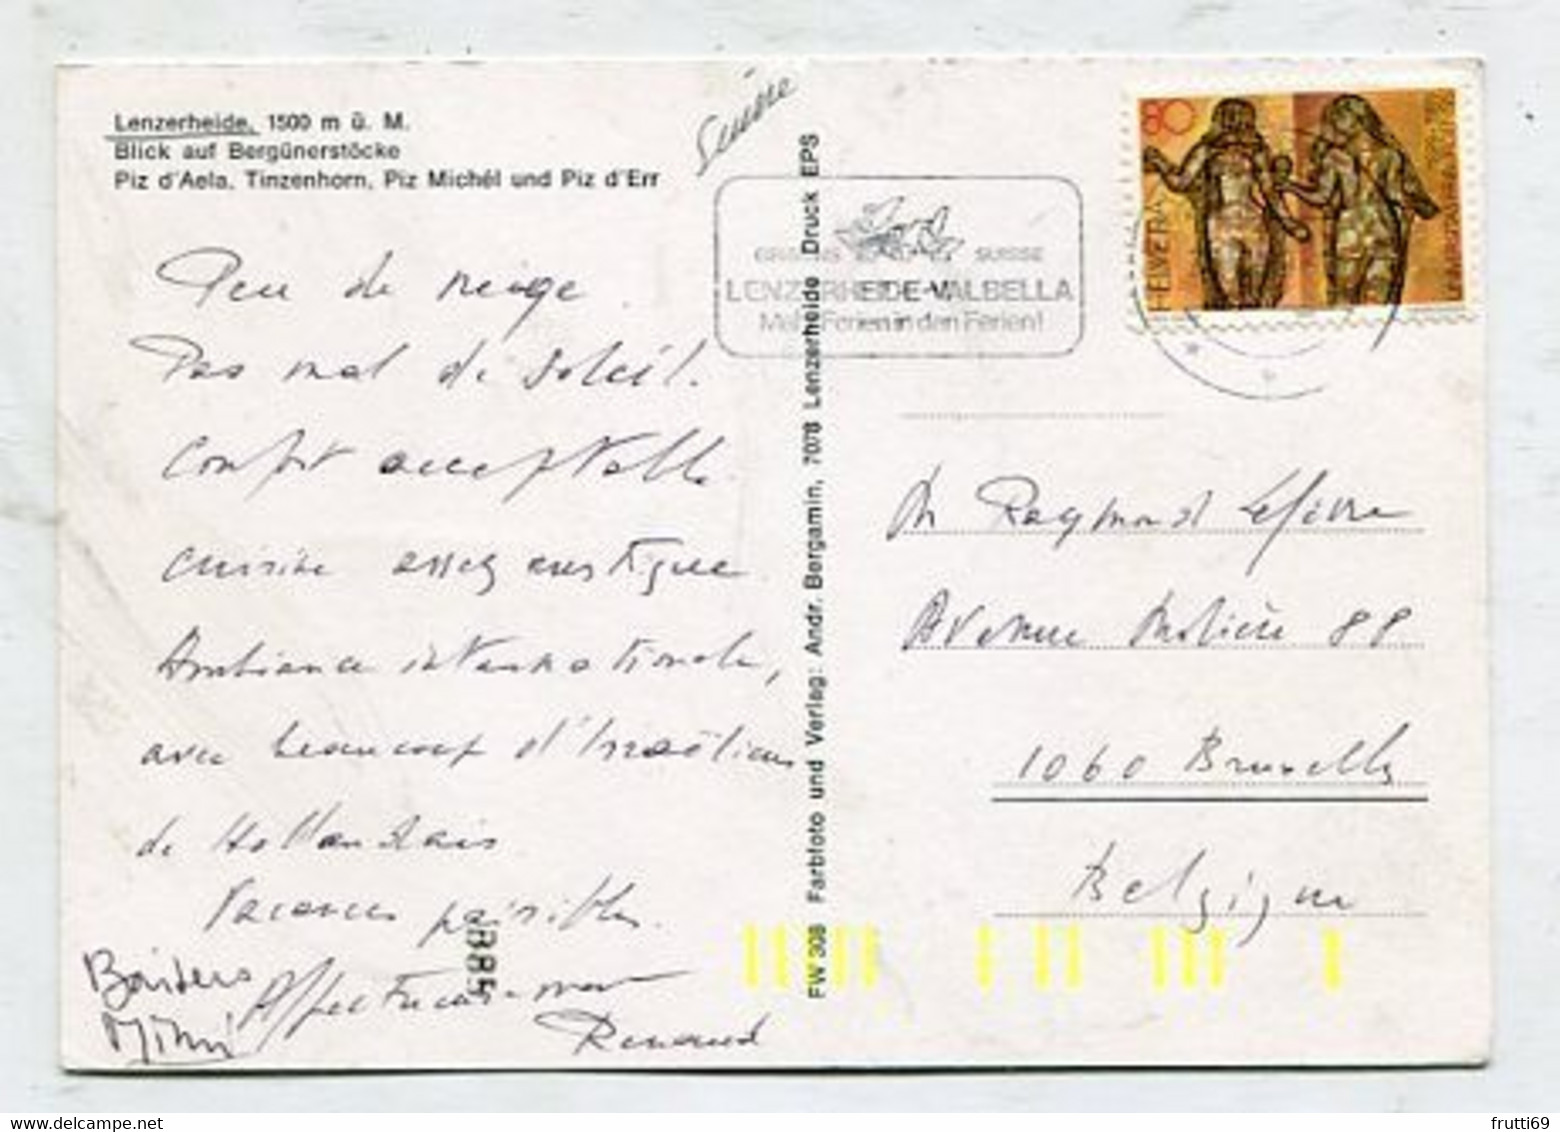 Lenzerheide, 1500 m ü. M.
Blick auf Bergünerstöcke
Piz d'Aela, Tinzenhorn, Piz Michél und Piz d'Err
Suisse
Peu de neige.
Pas mal de soleil.
Confort acceptable
cuisine assez rustique
Ambiance internationale,
avec beaucoup d'Israëliens
de Hollandais
Vacances paisibles.
Affectueusement
Renaud
Baisers
Mimi
B85
FW 308 Farbfoto und Verlag: Andr. Bergamin, 7078 Lenzerheide Druck EPS
SUISSE
LENZERHEIDE-VALBELLA
Mehr Ferien in den Ferien!
80
HELVETIA
M Raymond Lefèvre
Avenue Molière 88
1060 Bruxelles
Belgique
www.delcampe.net
frutti69